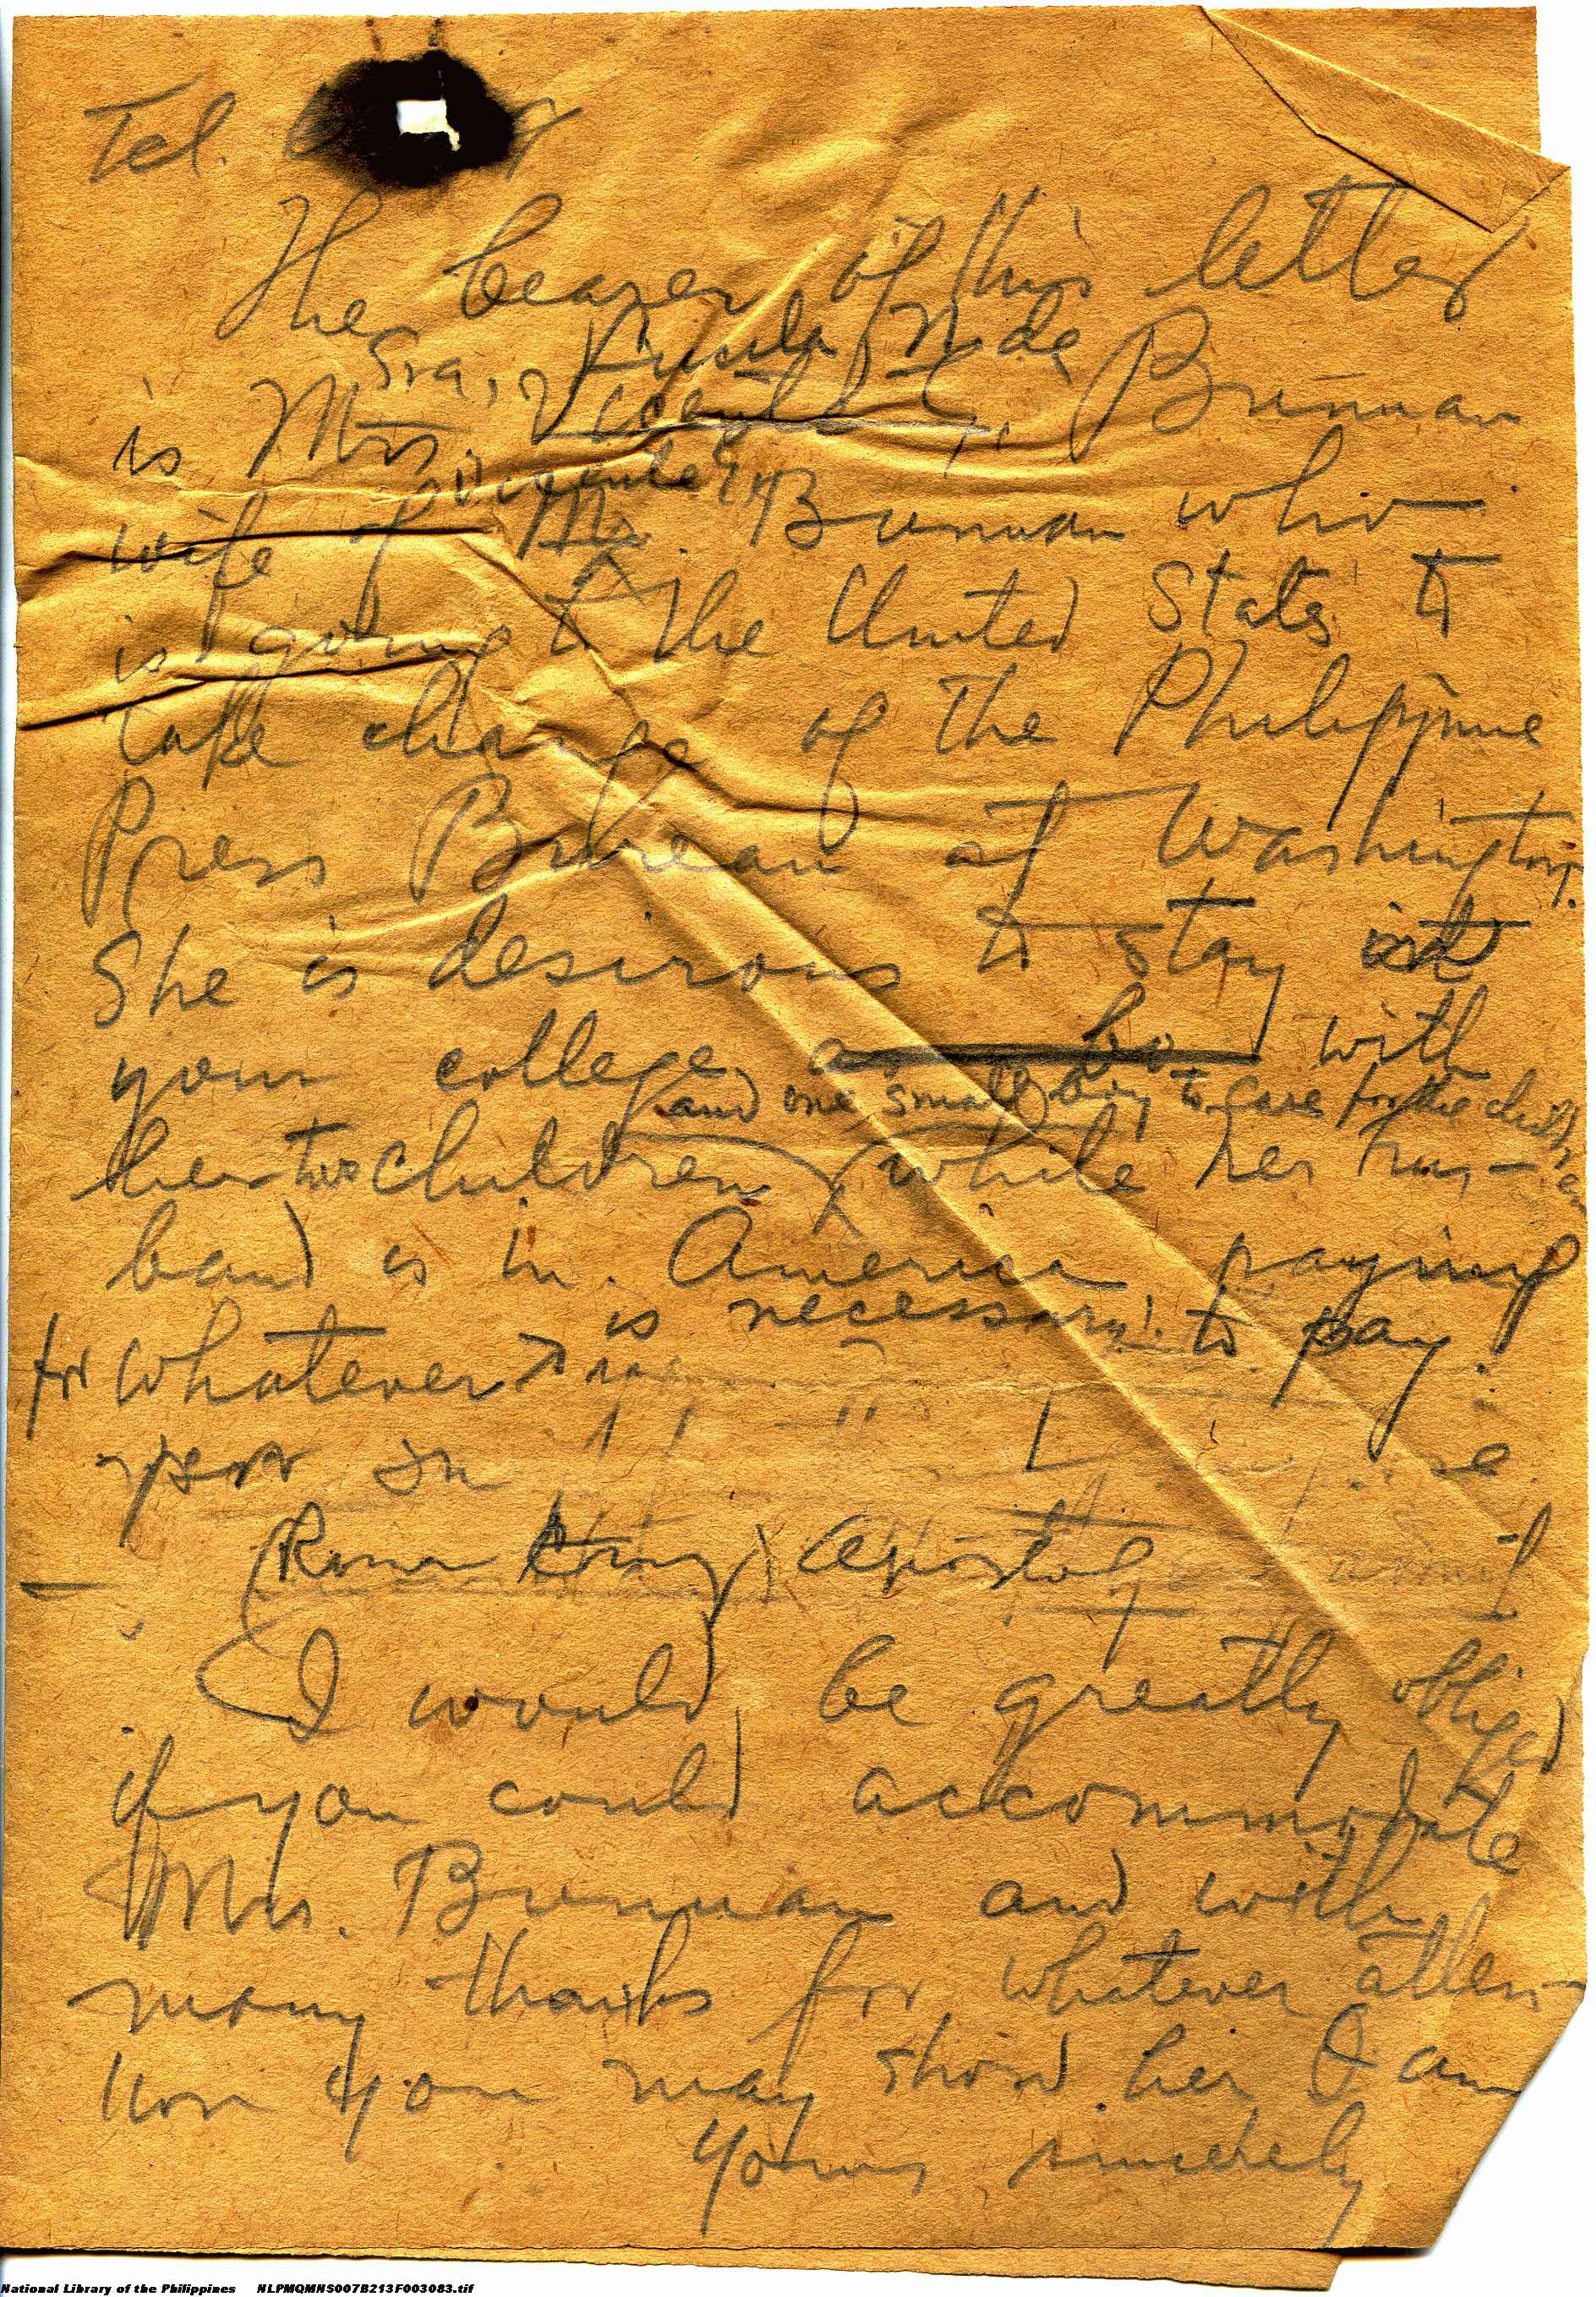 Tel.
The bearer of this letter
Sra. N. de
is Mrs. Bunuan
Vicente
wife of Mr. Bunuan who
is going to the United States to
take charge of the Philippine
Press Bureau at Washington.
She is desirous to stay in
your college with
and one small boy to care for the children
her two children while her hus-
band is in America paying
is necessary to pay.
for whatever
Roman Apostol
I would be greatly obliged
if you could accommodate
Mrs. Bunuan and with
many thanks for whatever atten-
tion you may show her I am
Yours sincerely
National Library of the Philippines NLPMQMNS007B213F003083.tif